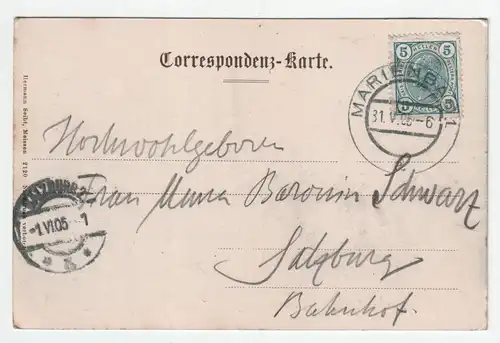 Correspondenz-Karte.
5 HELLER 5
MARIENBAD 1
31.V.05-6
Hochwohlgeboren
Frau Maria Baronin Schwarz
Salzburg
Bahnhof.
SALZBURG 2
-1.VI.05 1
Hermann Seibt, Meissen 2120